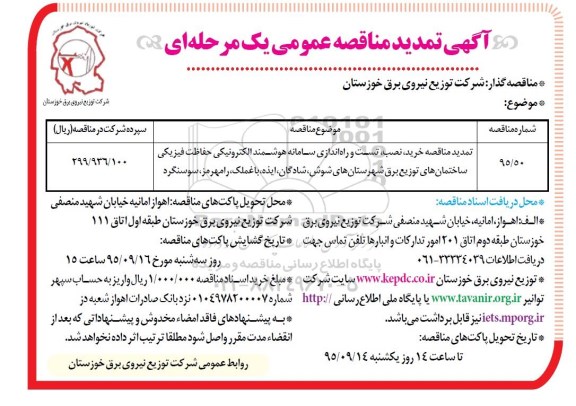 آگهی تمدید مناقصه عمومی یک مرحله‌ای
شرکت توزیع نیروی برق خوزستان
* مناقصه گذار: شرکت توزیع نیروی برق خوزستان
* موضوع:
شماره مناقصه موضوع مناقصه سپرده شرکت در مناقصه (ریال)
۹۵/۵۰ تمدید مناقصه خرید، نصب، تست و راه‌اندازی سامانه هوشمند الکترونیکی حفاظت فیزیکی ۲۹۹/۹۳۶/۱۰۰
ساختمان‌های توزیع برق شهرستان‌های شوش، شادگان، ایذه، باغملک، رامهرمز، سوسنگرد
* محل دریافت اسناد مناقصه:
* الف: اهواز، امانیه، خیابان شهید منصفی شرکت توزیع نیروی برق
خوزستان طبقه دوم اتاق ۲۰۱ امور تدارکات و انبارها تلفن تماس جهت
دریافت اطلاعات ۳۳۳۴۰۳۹-۰۶۱
* توزیع نیروی برق خوزستان www.kepdc.co.ir سایت شرکت
توانیر www.tavanir.org.ir یا پایگاه ملی اطلاع رسانی http://
iets.mporg.ir نیز قابل برداشت می‌باشد.
* تاریخ تحویل پاکت‌های مناقصه:
تا ساعت ۱۴ روز یکشنبه ۹۵/۰۹/۱۴
* محل تحویل پاکت‌های مناقصه: اهواز امانیه خیابان شهید منصفی
شرکت توزیع نیروی برق خوزستان طبقه اول اتاق ۱۱۱
* تاریخ گشایش پاکت‌های مناقصه:
روز سه‌شنبه مورخ ۹۵/۰۹/۱۶ ساعت ۱۵
* مبلغ خرید اسناد مناقصه ۱/۰۰۰/۰۰۰ ریال واریز به حساب سپهر
شماره ۰۱۰۴۹۷۸۲۰۰۰۰۷ نزد بانک صادرات اهواز شعبه دز
* به پیشنهادهای فاقد امضاء مخدوش و پیشنهاداتی که بعد از
انقضاء مدت مقرر واصل شود مطلقا ترتیب اثر داده نخواهد شد.
روابط عمومی شرکت توزیع نیروی برق خوزستان